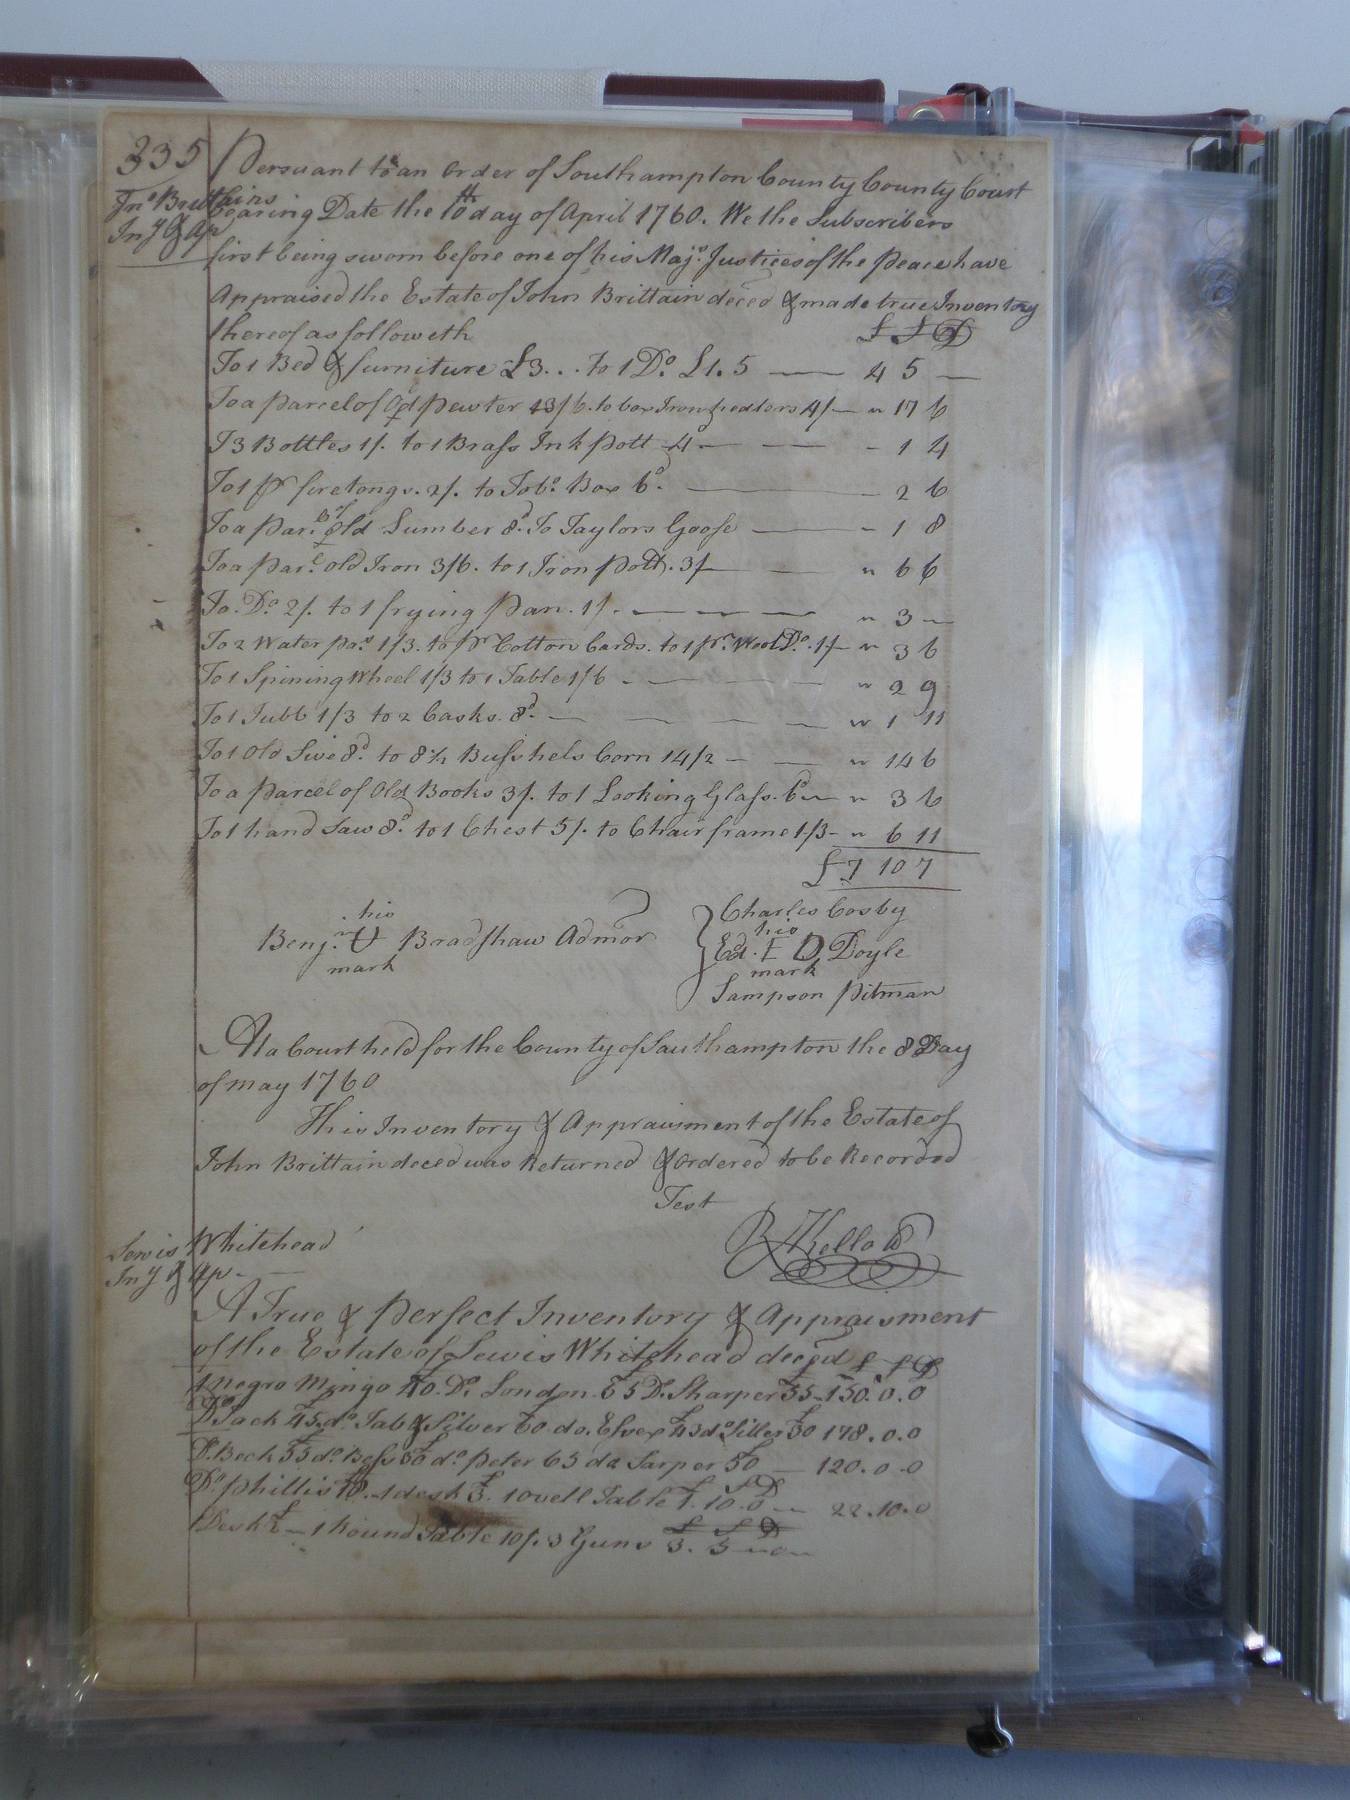 335
Persuant to an Order of Southampton County County Court
Jno Brittains
bearing Date the 10th day of April 1760. We the Subscribers
Iny & Ap
first being sworn before one of his Majs. Justices of the Peace have
Appraised the Estate of John Brittain deced & made true Inventory
thereof as followeth £ S D
To 1 Bed & furniture £3... to 1 Do. £1.5 — 4 5 —
To a parcel of Old Pewter 13/6. to box Iron heaters 4/— " 17 6
T 3 Bottles 1/. to 1 Brass Ink Pott 4 — — - 1 4
To 1 pr firetongs. 2/. to Tobo. Box 6d. — 2 6
To a Par. of Old Lumber 8d. To Taylors Goose — - 1 8
To a Parl. old Iron 3/6. to 1 Iron Pott. 3/— — " 6 6
To. Do 2/. to 1 frying Pan. 1/. — — — " 3 —
To 2 Water 1/3. to pr Cotton Cards. to 1 pr. Wool Do. 1/— " 3 6
To 1 Spining Wheel 1/3 to 1 Table 1/6 - — — " 2 9
To 1 Tubb 1/3 to 2 Casks. 8d. — — — — " 1 11
To 1 Old Sive 8d. to 8½ Busshels Corn 14/2 - — " 14 6
To a Parcel of Old Books 3/. to 1 Looking Glass. 6d — " 3 6
To 1 hand Saw 8d. to 1 Chest 5/. to Chair frame 1/3 - " 6 11
£7 10 7
his
Benj. Bradshaw Admor
mark
Charles Cosby
his
Ed. E D Doyle
mark
Sampson Pitman
At a Court held for the County of Southampton the 8 Day
of may 1760
This Inventory & Appraisment of the Estate of
John Brittain deced was Returned & Ordered to be Recorded
Test
R Kello
Lewis Whitehead
Iny & Ap -
A True & Perfect Inventory & Appraisment
of the Estate of Lewis Whitehead deced £ S D
1 negro Mingo £40. Do. London. £55 Do. Sharper £55 - 150.0.0
Do Jack £45. do. Tab & Silver £60. do. £43 do £30 178.0.0
Do. Beck 55 do. Bess do. peter 65 do £50 — 120.0.0
Do. Phillis 1 desk £3. 1 ovell Table £1.10.0 — 22.10.0
Desk £ — 1 Round Table 10/. 3 Guns £ S D 3. 5